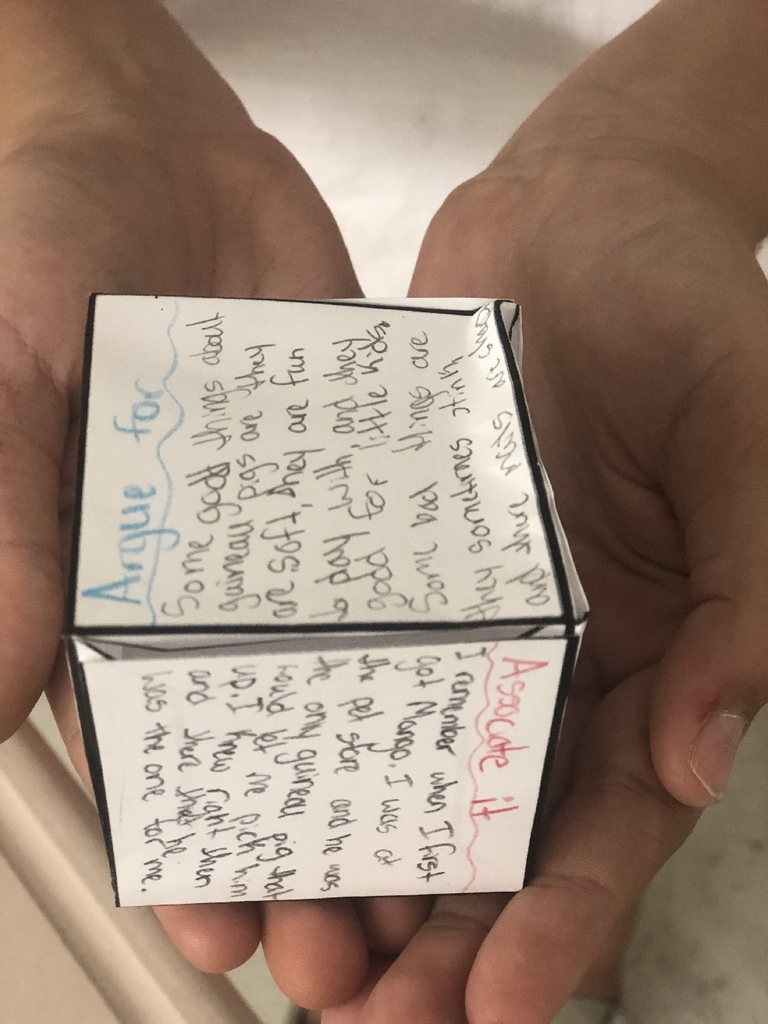 Argue for
Some good things about
guineau pigs are they
are soft, they are fun
to play with, and they
good for little kids.
Some bad things are
they sometimes stink
and there nails are sharp
Assocate it
I remember when I first
got Mango, I was at
the pet store and he was
the only guineau pig that
would let me pick him
up. I knew right then
and there that he
was the one for me.